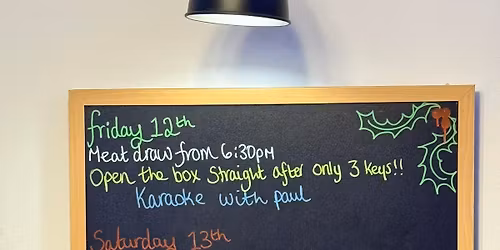 friday 12th
Meat draw from 6:30pm
Open the box straight after only 3 keys!!
Karaoke with paul
Saturday 13th